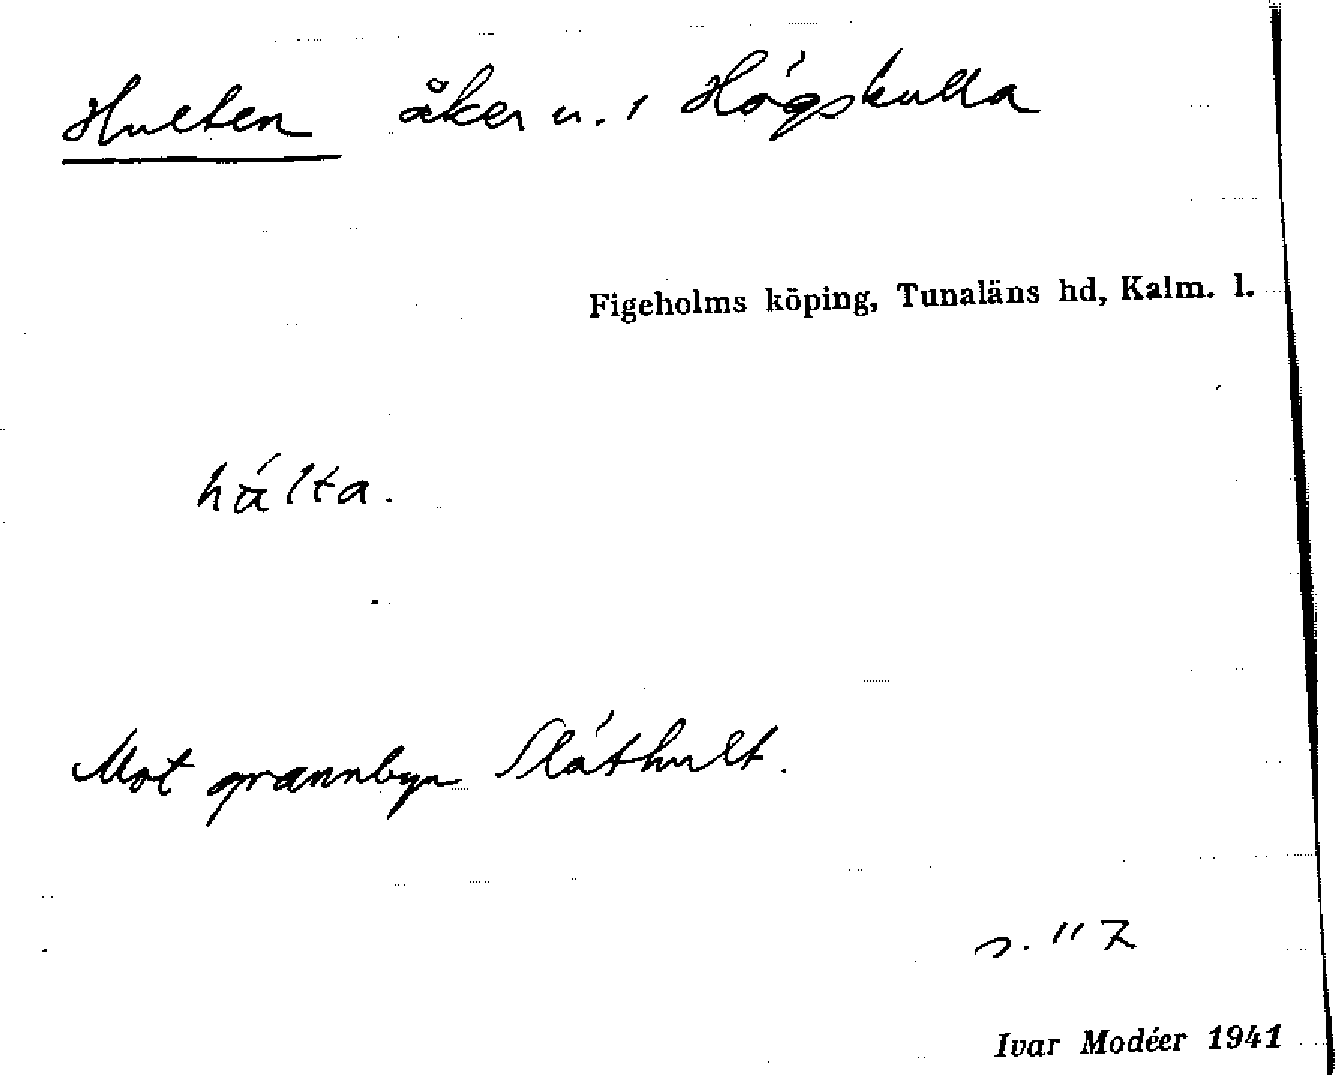 Hulten åker u. i Högskulla
Figeholms köping, Tunaläns hd, Kalm. l.
hálta.
Mot grannbyn Slåthult.
s. 117
Ivar Modéer 1941